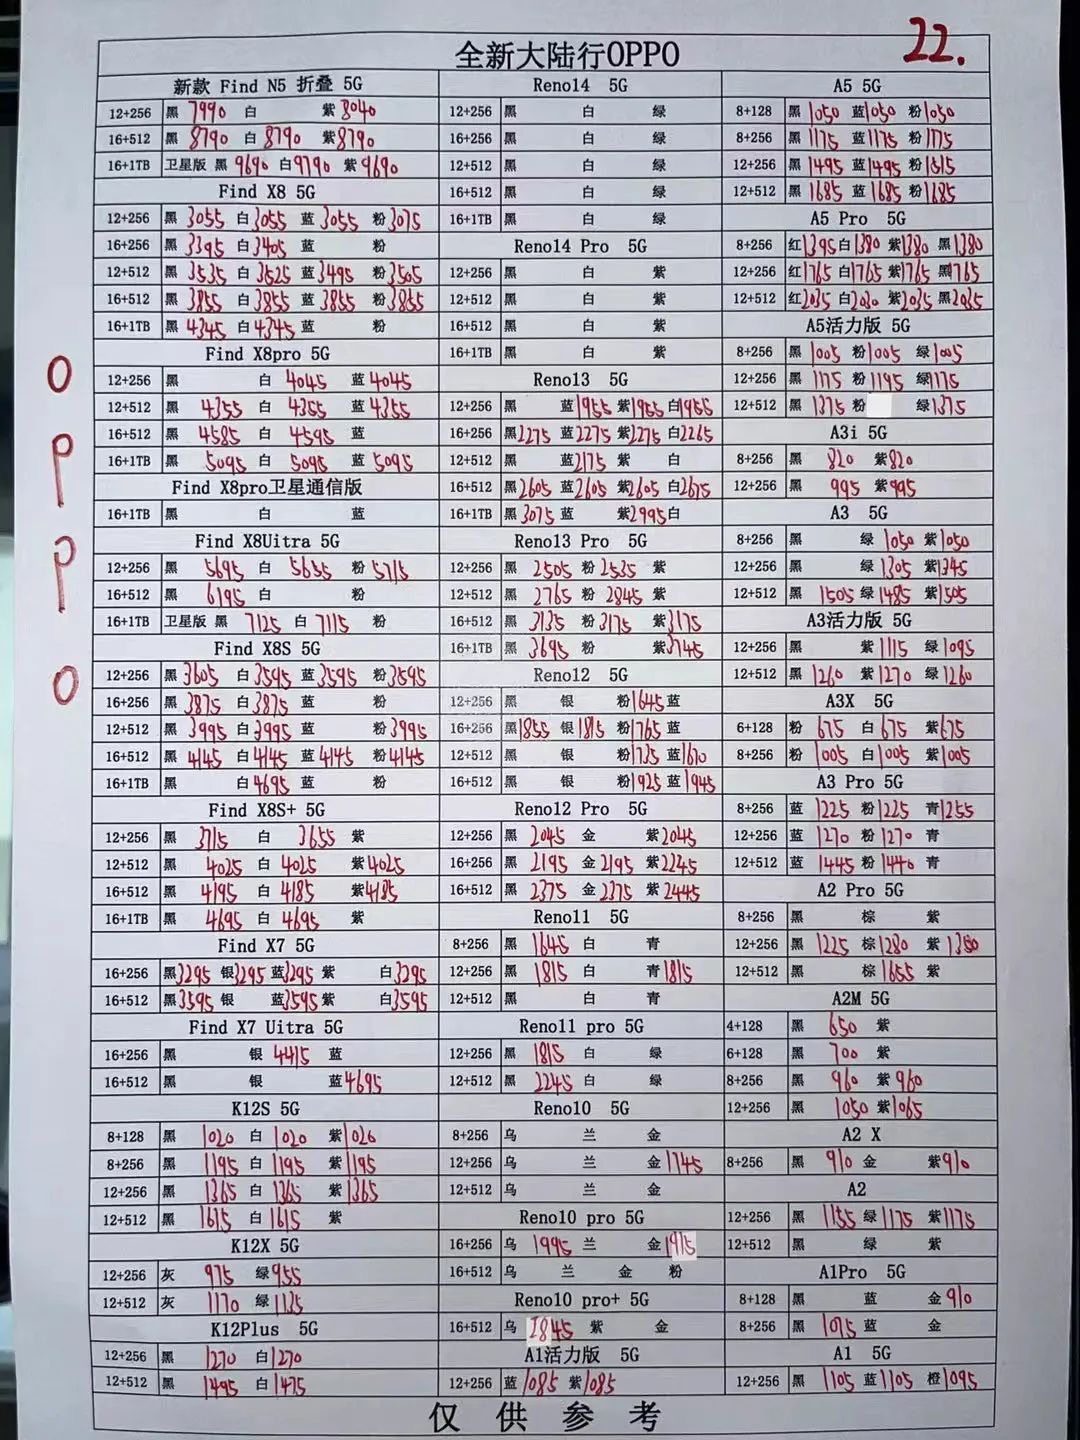 全新大陆行OPPO
22.
O
P
P
O
新款 Find N5 折叠 5G
12+256 黑 7990 白 紫 8040
16+512 黑 8790 白 8790 紫 8790
16+1TB 卫星版 黑 9690 白 9790 紫 9690
Find X8 5G
12+256 黑 3055 白 3055 蓝 3055 粉 3075
16+256 黑 3395 白 3405 蓝 粉
12+512 黑 3535 白 3525 蓝 3495 粉 3505
16+512 黑 3855 白 3855 蓝 3855 粉 3855
16+1TB 黑 4345 白 4345 蓝 粉
Find X8pro 5G
12+256 黑 白 4045 蓝 4045
12+512 黑 4355 白 4355 蓝 4355
16+512 黑 4585 白 4595 蓝
16+1TB 黑 5095 白 5095 蓝 5095
Find X8pro卫星通信版
16+1TB 黑 白 蓝
Find X8Uitra 5G
12+256 黑 5695 白 5655 粉 5715
16+512 黑 6195 白 粉
16+1TB 卫星版 黑 7125 白 7115 粉
Find X8S 5G
12+256 黑 3605 白 3595 蓝 3595 粉 3595
16+256 黑 3875 白 3875 蓝 粉
12+512 黑 3995 白 3995 蓝 粉 3995
16+512 黑 4145 白 4145 蓝 4145 粉 4145
16+1TB 黑 白 4695 蓝 粉
Find X8S+ 5G
12+256 黑 3715 白 3655 紫
12+512 黑 4025 白 4025 紫 4025
16+512 黑 4195 白 4185 紫 4185
16+1TB 黑 4695 白 4695 紫
Find X7 5G
16+256 黑 3295 银 3295 蓝 3295 紫 白 3295
16+512 黑 3595 银 蓝 3595 紫 白 3595
Find X7 Uitra 5G
16+256 黑 银 4415 蓝
16+512 黑 银 蓝 4695
K12S 5G
8+128 黑 1020 白 1020 紫 1020
8+256 黑 1195 白 1195 紫 1195
12+256 黑 1365 白 1365 紫 1365
12+512 黑 1615 白 1615 紫
K12X 5G
12+256 灰 975 绿 955
12+512 灰 1170 绿 1135
K12Plus 5G
12+256 黑 1270 白 1270
12+512 黑 1495 白 1475
Reno14 5G
12+256 黑 白 绿
16+256 黑 白 绿
12+512 黑 白 绿
16+512 黑 白 绿
16+1TB 黑 白 绿
Reno14 Pro 5G
12+256 黑 白 紫
12+512 黑 白 紫
16+512 黑 白 紫
16+1TB 黑 白 紫
Reno13 5G
12+256 黑 蓝 1955 紫 1955 白 1955
16+256 黑 2275 蓝 2275 紫 2275 白 2265
12+512 黑 蓝 2175 紫 白
16+512 黑 2605 蓝 2605 紫 2605 白 2675
16+1TB 黑 3075 蓝 紫 2995 白
Reno13 Pro 5G
12+256 黑 2505 粉 2535 紫
12+512 黑 2765 粉 2845 紫
16+512 黑 3135 粉 3175 紫 3175
16+1TB 黑 3695 粉 紫 3745
Reno12 5G
12+256 黑 银 粉 1645 蓝
16+256 黑 1855 银 1815 粉 1765 蓝
12+512 黑 银 粉 1735 蓝 1670
16+512 黑 银 粉 1925 蓝 1945
Reno12 Pro 5G
12+256 黑 2045 金 紫 2045
16+256 黑 2195 金 2195 紫 2245
16+512 黑 2375 金 2375 紫 2445
Reno11 5G
8+256 黑 1645 白 青
12+256 黑 1815 白 青 1815
12+512 黑 白 青
Reno11 pro 5G
12+256 黑 1815 白 绿
12+512 黑 2245 白 绿
Reno10 5G
8+256 乌 兰 金
12+256 乌 兰 金 1745
12+512 乌 兰 金
Reno10 pro 5G
16+256 乌 1995 兰 金 1915
16+512 乌 兰 金 粉
Reno10 pro+ 5G
16+512 乌 2845 紫 金
A1活力版 5G
12+256 蓝 1085 紫 1085
A5 5G
8+128 黑 1050 蓝 1050 粉 1050
8+256 黑 1175 蓝 1175 粉 1175
12+256 黑 1495 蓝 1495 粉 1515
12+512 黑 1685 蓝 1685 粉 1685
A5 Pro 5G
8+256 红 1395 白 1380 紫 1380 黑 1380
12+256 红 1765 白 1765 紫 1765 黑 1765
12+512 红 2035 白 2030 紫 2035 黑 2035
A5活力版 5G
8+256 黑 1005 粉 1005 绿 1005
12+256 黑 1175 粉 1195 绿 1175
12+512 黑 1375 粉 绿 1375
A3i 5G
8+256 黑 820 紫 820
12+256 黑 995 紫 995
A3 5G
8+256 黑 绿 1050 紫 1050
12+256 黑 绿 1305 紫 1345
12+512 黑 1505 绿 1485 紫 1505
A3活力版 5G
12+256 黑 紫 1115 绿 1095
12+512 黑 1260 紫 1270 绿 1260
A3X 5G
6+128 粉 675 白 675 紫 675
8+256 粉 1005 白 1005 紫 1005
A3 Pro 5G
8+256 蓝 1225 粉 1225 青 1255
12+256 蓝 1270 粉 1270 青
12+512 蓝 1445 粉 1440 青
A2 Pro 5G
8+256 黑 棕 紫
12+256 黑 1225 棕 1280 紫 1380
12+512 黑 棕 1655 紫
A2M 5G
4+128 黑 650 紫
6+128 黑 700 紫
8+256 黑 960 紫 960
12+256 黑 1050 紫 1065
A2 X
8+256 黑 910 金 紫 910
A2
12+256 黑 1155 绿 1175 紫 1175
12+512 黑 绿 紫
A1Pro 5G
8+128 黑 蓝 金 910
8+256 黑 1075 蓝 金
A1 5G
12+256 黑 1105 蓝 1105 橙 1095
仅供参考